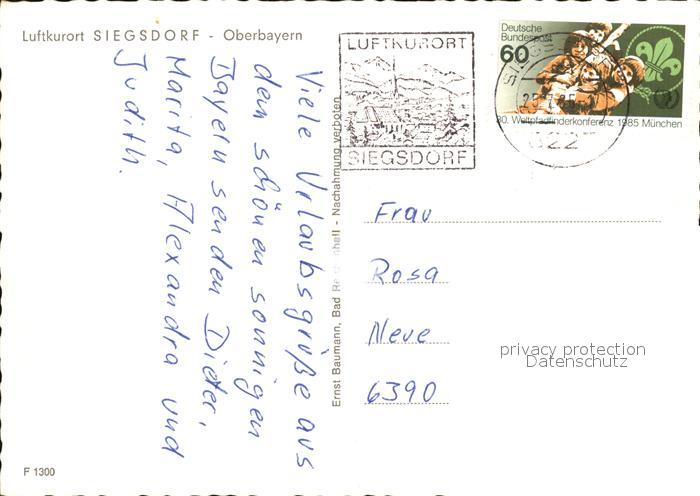 Luftkurort SIEGSDORF - Oberbayern
Viele Urlaubsgrüße aus
dem schönen sonnigen
Bayern senden Dieter,
Marita, Alexandra und
Judith.
LUFTKURORT
SIEGSDORF
Deutsche
Bundespost
60
30. Weltpfadfinderkonferenz 1985 München
822
Ernst Baumann, Bad Reichenhall - Nachahmung verboten
Frau
Rosa
Neve
6390
privacy protection
Datenschutz
F 1300